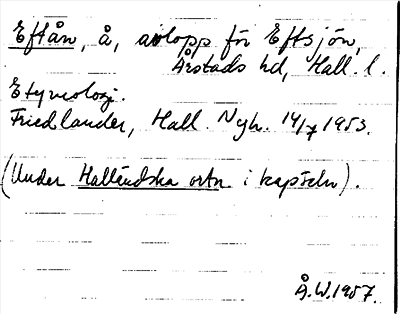 Eftån, å, avlopp för Eftsjön,
Årstads hd, Hall. l.
Etymologi.
Friedlander, Hall. Nyh. 14/7 1953.
(Under Halländska ortn. i kapseln).
Å.W.1957.